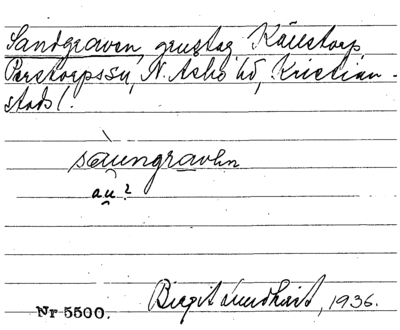 Sandgraven, grustag Källstorp
Perstorps sn, N. Åsbo hd, Kristian-
stads l.
sàungravhn
au?
Birgit Lundkvist, 1936.
Nr 5500.